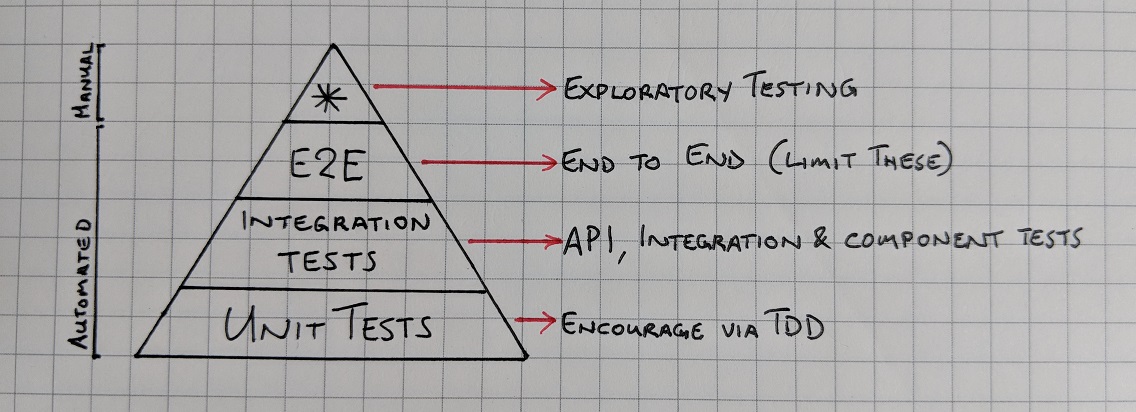 MANUAL
AUTOMATED
*
EXPLORATORY TESTING
E2E
END TO END (LIMIT THESE)
INTEGRATION
TESTS
API, INTEGRATION & COMPONENT TESTS
UNIT TESTS
ENCOURAGE VIA TDD